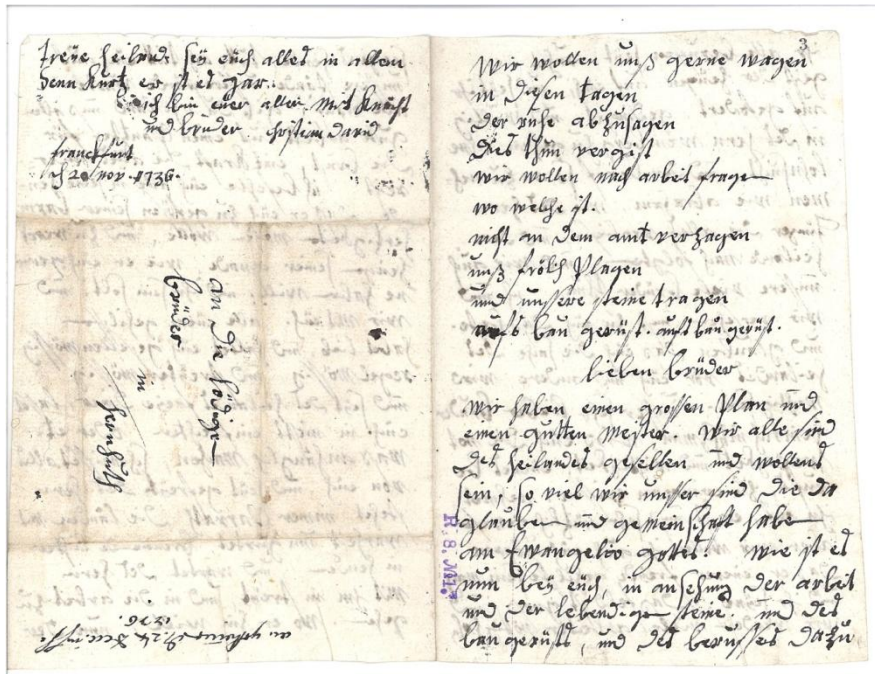 treüe heiland. sey euch alles in allem
denn kurtz er ist es gar.
ich bin euer aller mit knecht
und brüder christian david
franckfurt
d 20 nov. 1736.
an die ledige
brüder
in
herrnhuth
1736.
3
wir wollen unß gerne wagen
in diesen tagen
der ruhe abzusagen
dies thun vergist
wir wollen nach arbeit fragen
wo welche ist.
nicht an dem amt verzagen
unß frölich plagen
und unssere steine tragen
aufs bau gerüst. aufs bau gerüst.
lieben brüder
wir haben einen grossen plan und
einen gutten meister. wir alle sind
des heilandes gesellen und wollens
sein, so viel wir unsser sind die da
glauben und gemeinschaft haben
am Ewangelio gottes. wie ist es
nun bey euch, in ansehung der arbeit
und der lebendigen steine, und des
baugerüsts, und des beruffes dazu